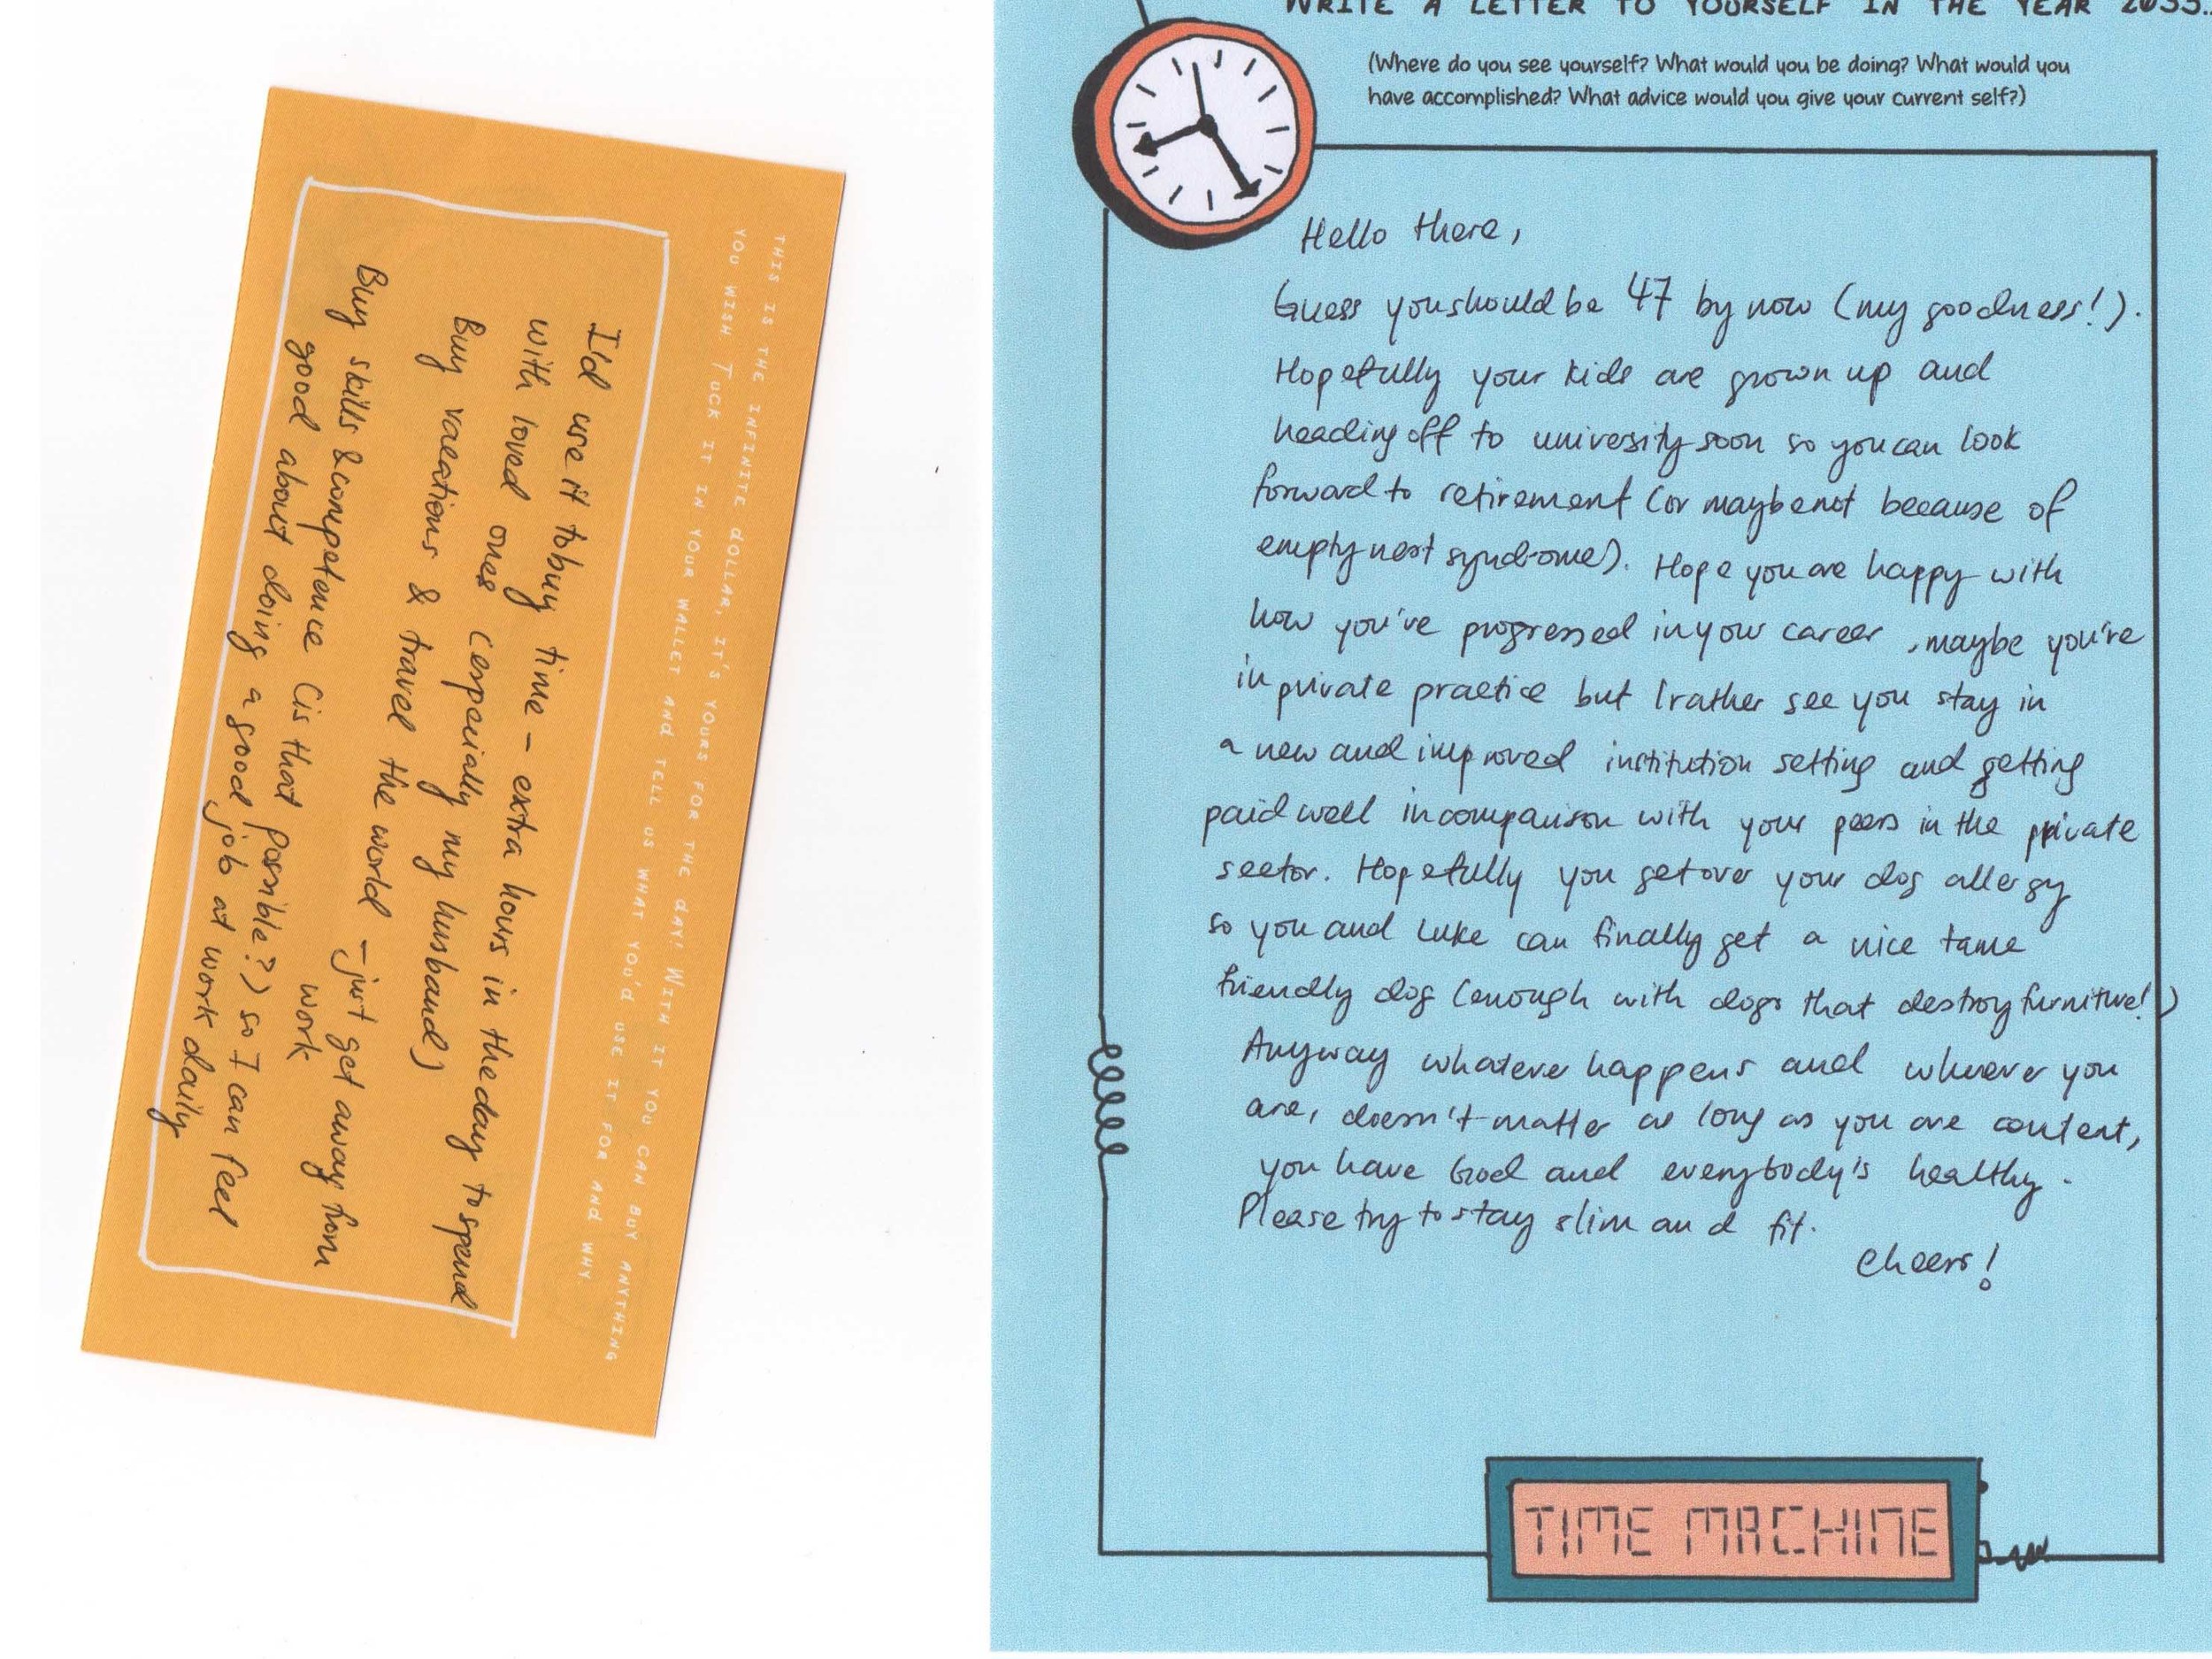 THIS IS THE INFINITE DOLLAR, IT'S YOURS FOR THE DAY! WITH IT YOU CAN BUY ANYTHING
YOU WISH TUCK IT IN YOUR WALLET AND TELL US WHAT YOU'D USE IT FOR AND WHY
I'ld use it to buy time – extra hours in the day to spend
with loved ones (especially my husband)
Buy vacations & travel the world – just get away from
work
Buy skills & competence (is that possible?) so I can feel
good about doing a good job at work daily
WRITE A LETTER TO YOURSELF IN THE YEAR 2035..
(Where do you see yourself? What would you be doing? What would you
have accomplished? What advice would you give your current self?)
Hello there,
Guess you should be 47 by now (my goodness!).
Hopefully your kids are grown up and
heading off to university soon so you can look
forward to retirement (or maybe not because of
empty nest syndrome). Hope you are happy with
how you've progressed in your career, maybe you're
in private practice but I rather see you stay in
a new and improved institution setting and getting
paid well in comparison with your peers in the private
sector. Hopefully you get over your dog allergy
so you and Luke can finally get a nice tame
friendly dog (enough with dogs that destroy furniture!)
Anyway whatever happens and wherever you
are, doesn't matter as long as you are content,
you have God and everybody's healthy.
Please try to stay slim and fit.
Cheers!
TIME MACHINE